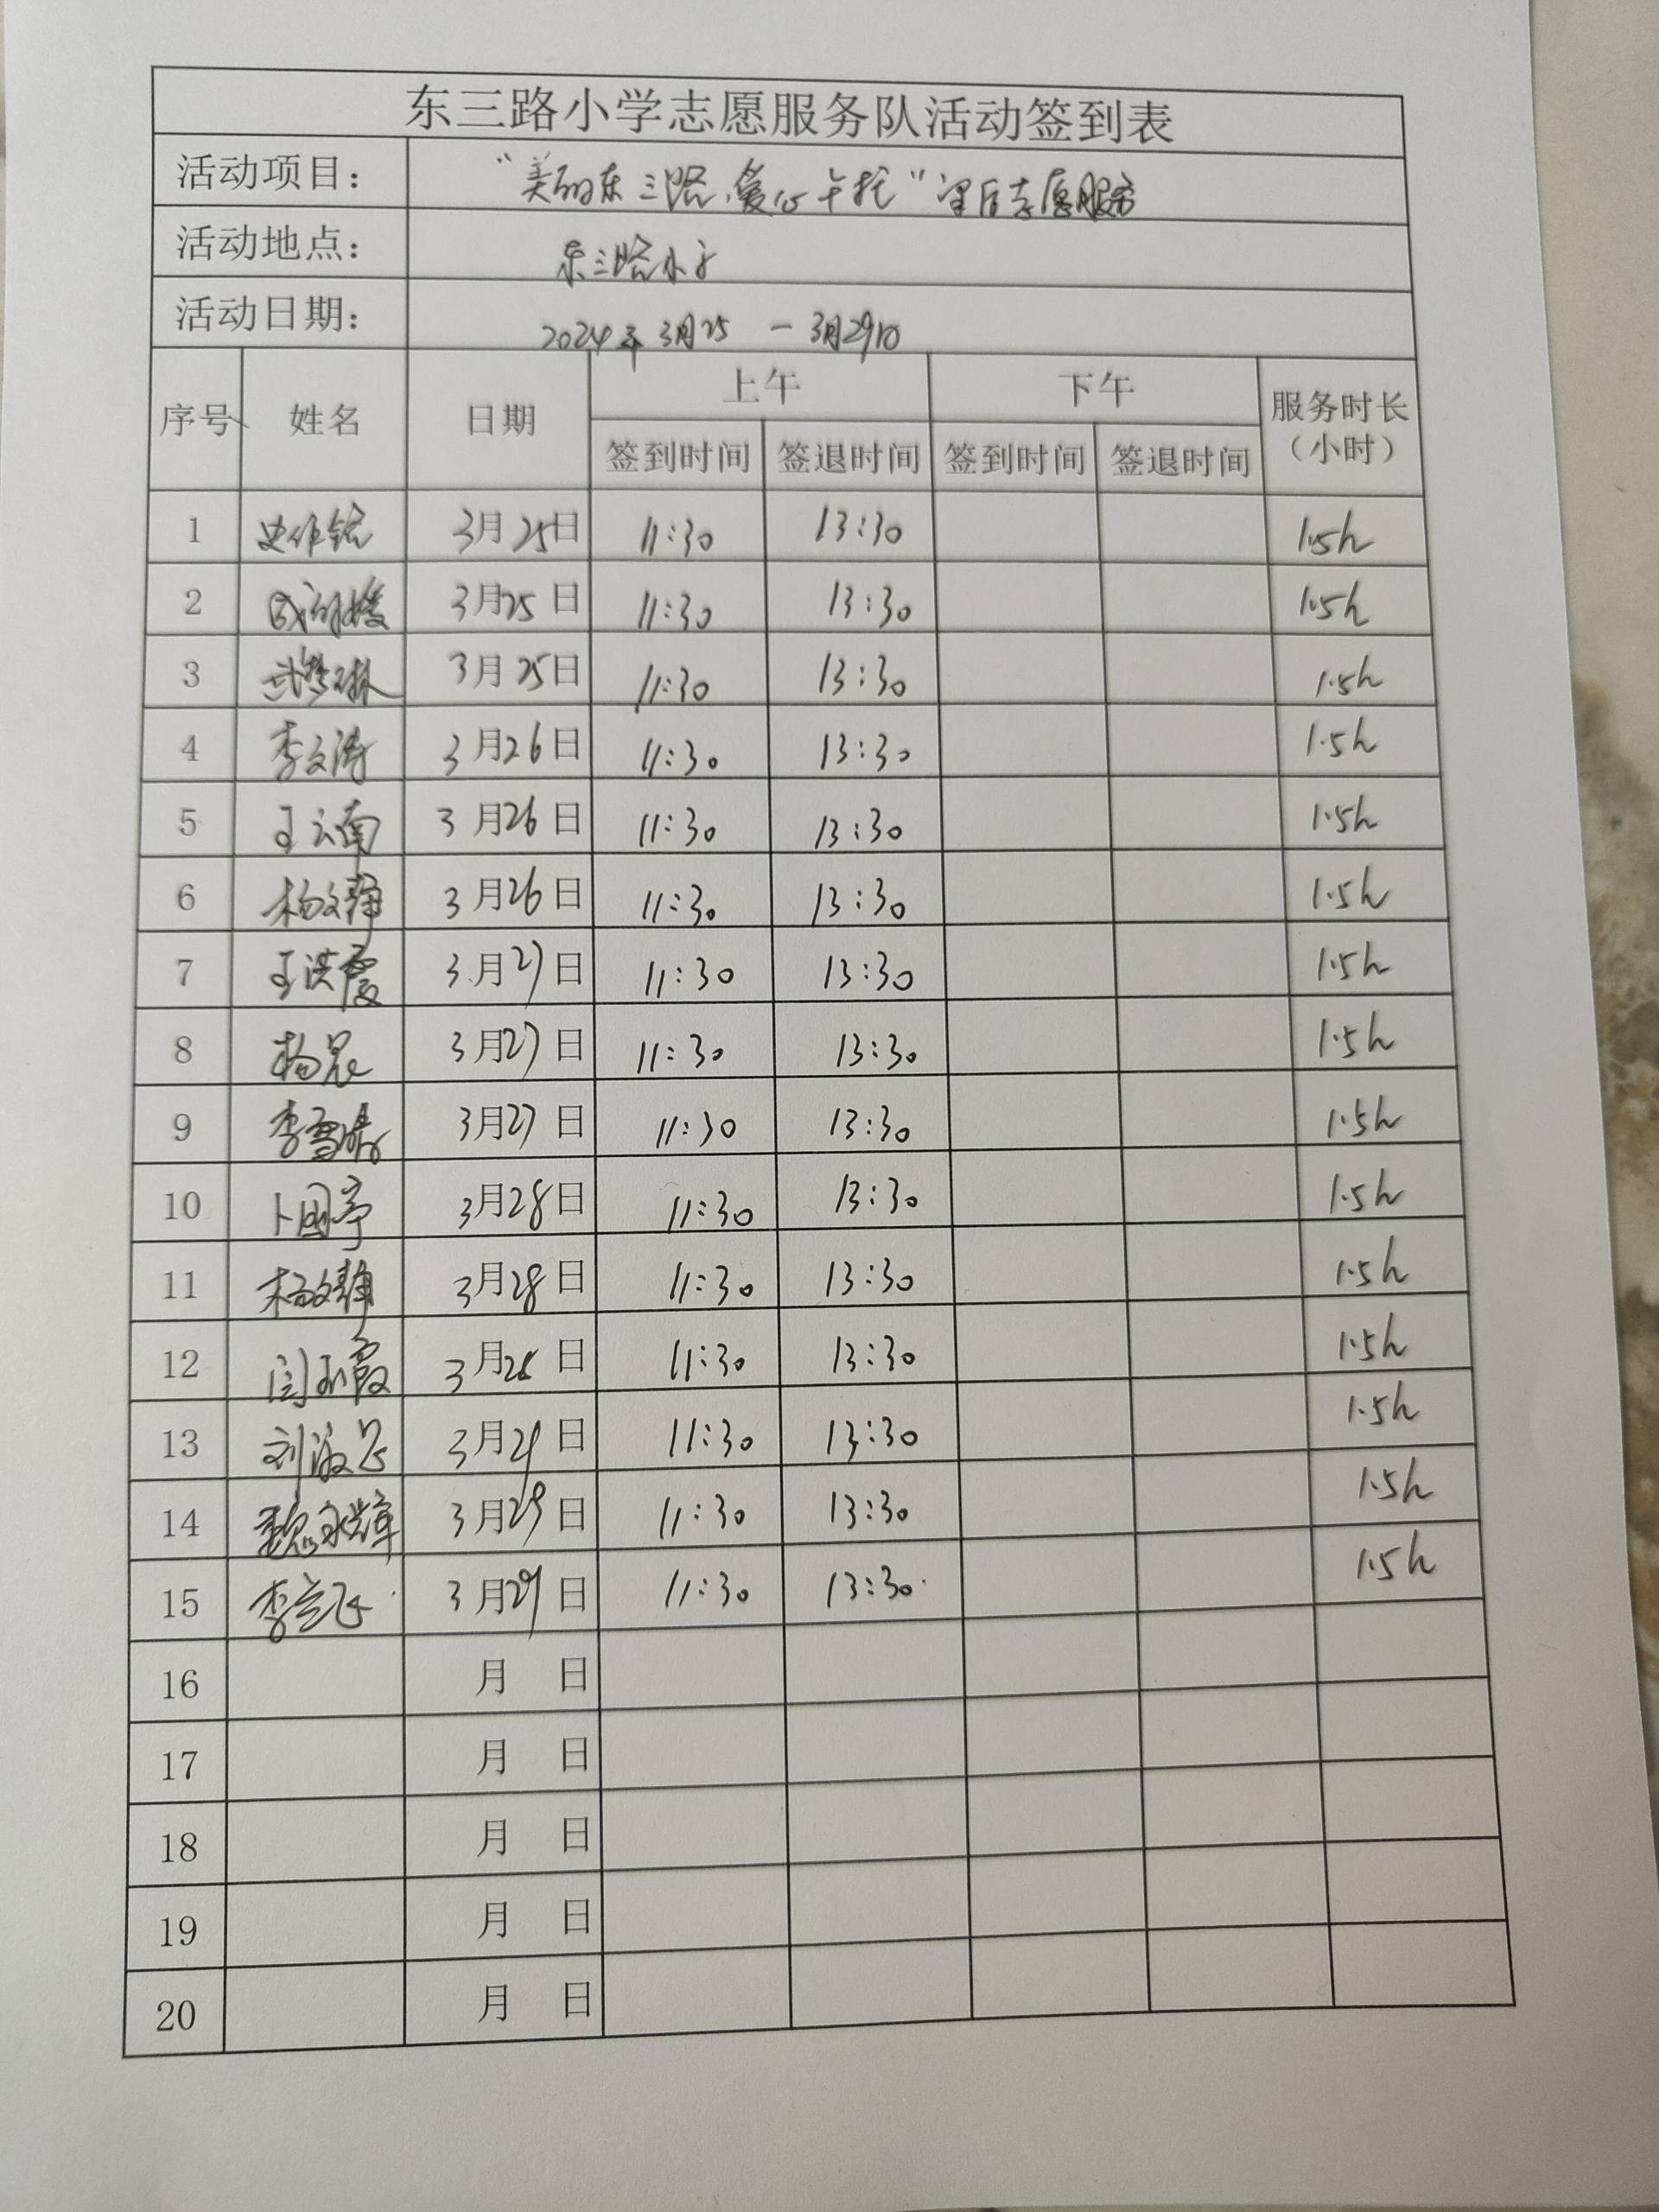 东三路小学志愿服务队活动签到表
活动项目： “美的东三路，爱心午托” 志愿服务
活动地点： 东三路小学
活动日期： 2024年3月25 — 3月29日
序号 姓名 日期 上午 下午 服务时长
签到时间 签退时间 签到时间 签退时间 （小时）
1 3月25日 11:30 13:30 1.5h
2 3月25日 11:30 13:30 1.5h
3 3月25日 11:30 13:30 1.5h
4 李文涛 3月26日 11:30 13:30 1.5h
5 王云南 3月26日 11:30 13:30 1.5h
6 杨文静 3月26日 11:30 13:30 1.5h
7 王洪霞 3月27日 11:30 13:30 1.5h
8 杨晨 3月27日 11:30 13:30 1.5h
9 李雪 3月27日 11:30 13:30 1.5h
10 卜国亭 3月28日 11:30 13:30 1.5h
11 杨文静 3月28日 11:30 13:30 1.5h
12 闫玉霞 3月28日 11:30 13:30 1.5h
13 刘 3月29日 11:30 13:30 1.5h
14 魏永辉 3月29日 11:30 13:30 1.5h
15 李 3月29日 11:30 13:30 1.5h
16 月 日
17 月 日
18 月 日
19 月 日
20 月 日